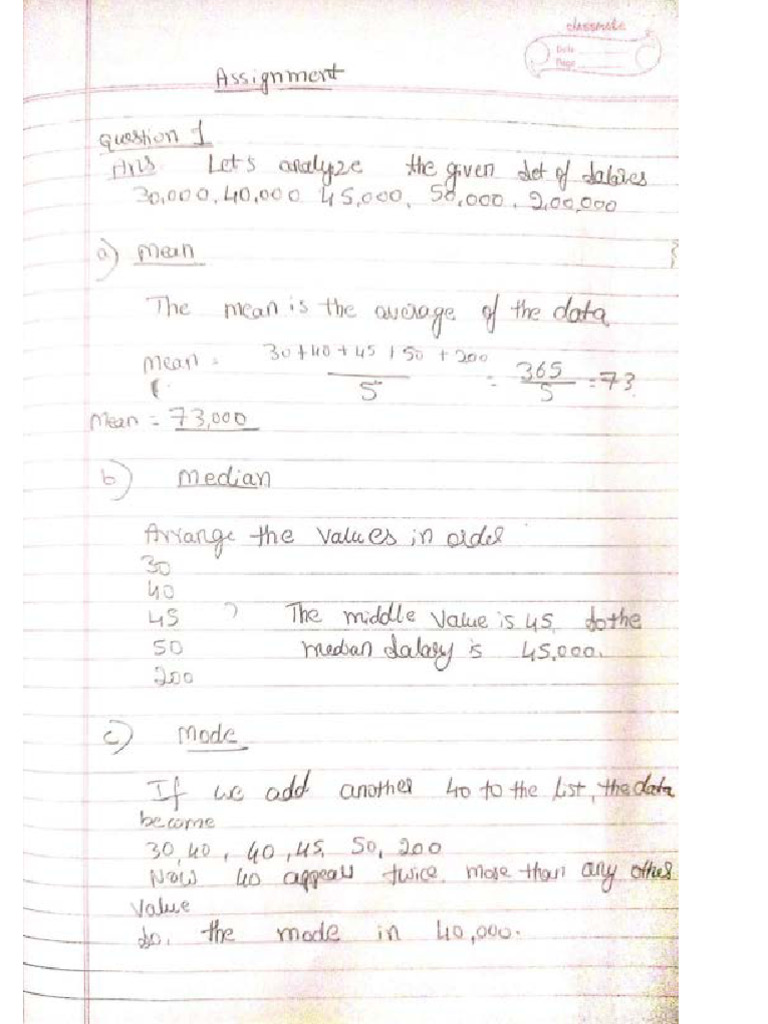 classmate
Date
Page
Assignment
Question 1
Ans Let's analyze the given set of salaries
30,000, 40,000 45,000, 50,000, 2,00,000
a) mean
The mean is the average of the data
mean = 30 + 40 + 45 + 50 + 200 / 5 = 365 / 5 = 73
Mean = 73,000
b) median
Arrange the values in order
30
40
45 The middle value is 45, so the
50 median salary is 45,000.
200
c) mode
If we add another 40 to the list, the data
become
30, 40, 40, 45, 50, 200
Now 40 appears twice, more than any other
value
so, the mode in 40,000.